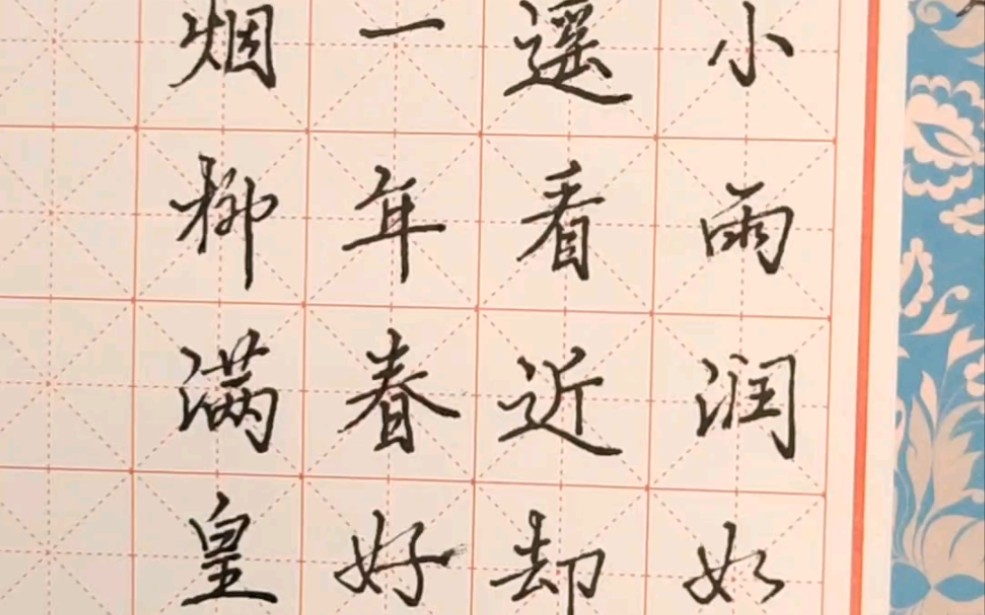 小雨润如
遥看近却
一年春好
烟柳满皇